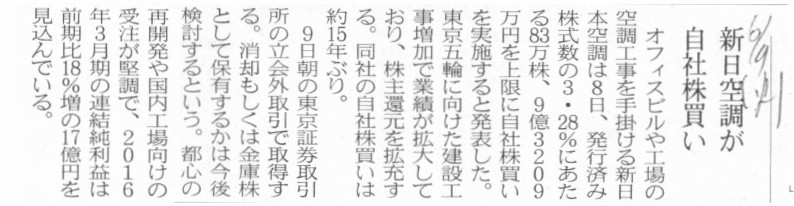 新日空調が
自社株買い
オフィスビルや工場の
空調工事を手掛ける新日
本空調は8日、発行済み
株式数の3・28%にあた
る83万株、9億3209
万円を上限に自社株買い
を実施すると発表した。
東京五輪に向けた建設工
事増加で業績が拡大して
おり、株主還元を拡充す
る。同社の自社株買いは
約15年ぶり。
9日朝の東京証券取引
所の立会外取引で取得す
る。消却もしくは金庫株
として保有するかは今後
検討するという。都心の
再開発や国内工場向けの
受注が堅調で、2016
年3月期の連結純利益は
前期比18%増の17億円を
見込んでいる。